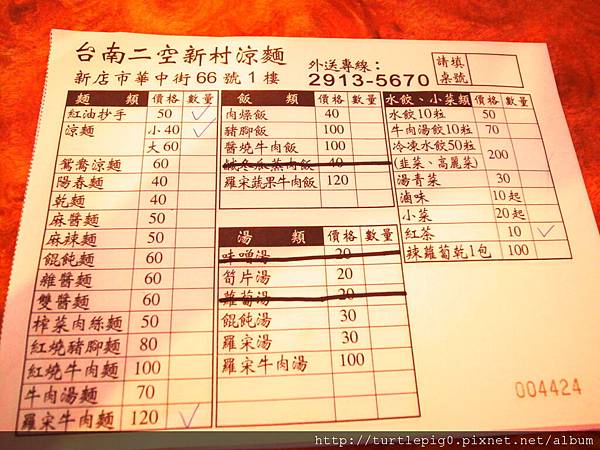 台南二空新村涼麵
新店市華中街66號1樓
外送專線：
2913-5670
請填
桌號
麵 類 價格 數量
紅油抄手 50
涼麵 小40
大60
鴛鴦涼麵 60
陽春麵 40
乾麵 40
麻醬麵 50
麻辣麵 50
餛飩麵 60
雜醬麵 60
雙醬麵 60
榨菜肉絲麵 50
紅燒豬腳麵 80
紅燒牛肉麵 100
牛肉湯麵 70
羅宋牛肉麵 120
飯 類 價格 數量
肉燥飯 40
豬腳飯 100
醬燒牛肉飯 100
鹹冬瓜蒸肉飯 40
羅宋蔬果牛肉飯 120
湯 類 價格 數量
味噌湯 20
筍片湯 20
蘿蔔湯 20
餛飩湯 30
羅宋湯 30
羅宋牛肉湯 100
水餃、小菜類 價格 數量
水餃10粒 50
牛肉湯餃10粒 70
冷凍水餃50粒 200
(韭菜、高麗菜)
湯青菜 30
滷味 10起
小菜 20起
紅茶 10
辣蘿蔔乾1包 100
004424
http://turtlepig0.pixnet.net/album